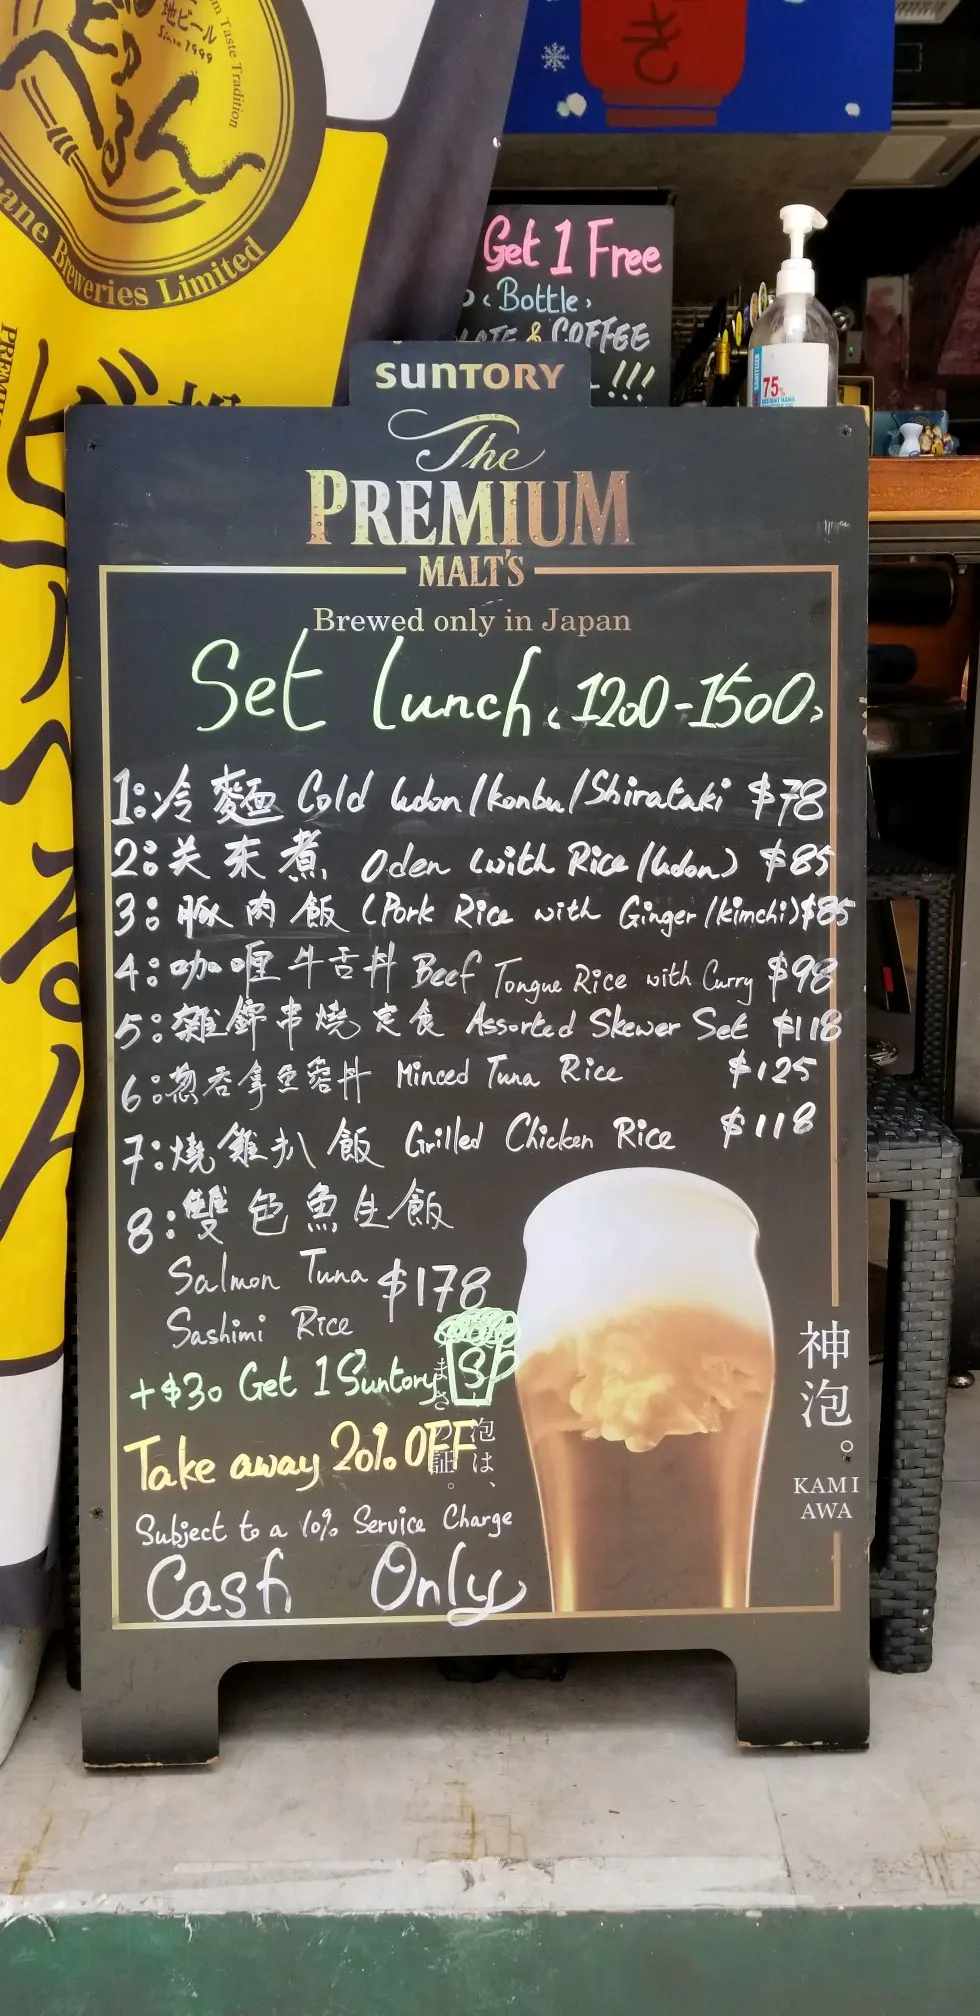 地ビール
Since 1999
um Taste Tradition
ane Breweries Limited
き
Get 1 Free
Bottle
& COFFEE
!!!
75%
SUNTORY
The
PREMIUM
MALT'S
Brewed only in Japan
Set lunch <1200-1500>
1:冷麵 Cold Udon/Konbu/Shirataki $78
2:关东煮 Oden (with Rice/Udon) $85
3:豚肉飯 (Pork Rice with Ginger/kimchi) $85
4:咖喱牛舌丼 Beef Tongue Rice with Curry $98
5:雜錦串燒定食 Assorted Skewer Set $118
6:葱吞拿魚蓉丼 Minced Tuna Rice $125
7:燒雞扒飯 Grilled Chicken Rice $118
8:雙色魚生飯
Salmon Tuna $178
Sashimi Rice
+$30 Get 1 Suntory
Take away 20% OFF
Subject to a 10% Service Charge
Cash Only
泡は、
証。
神泡。
KAMI
AWA